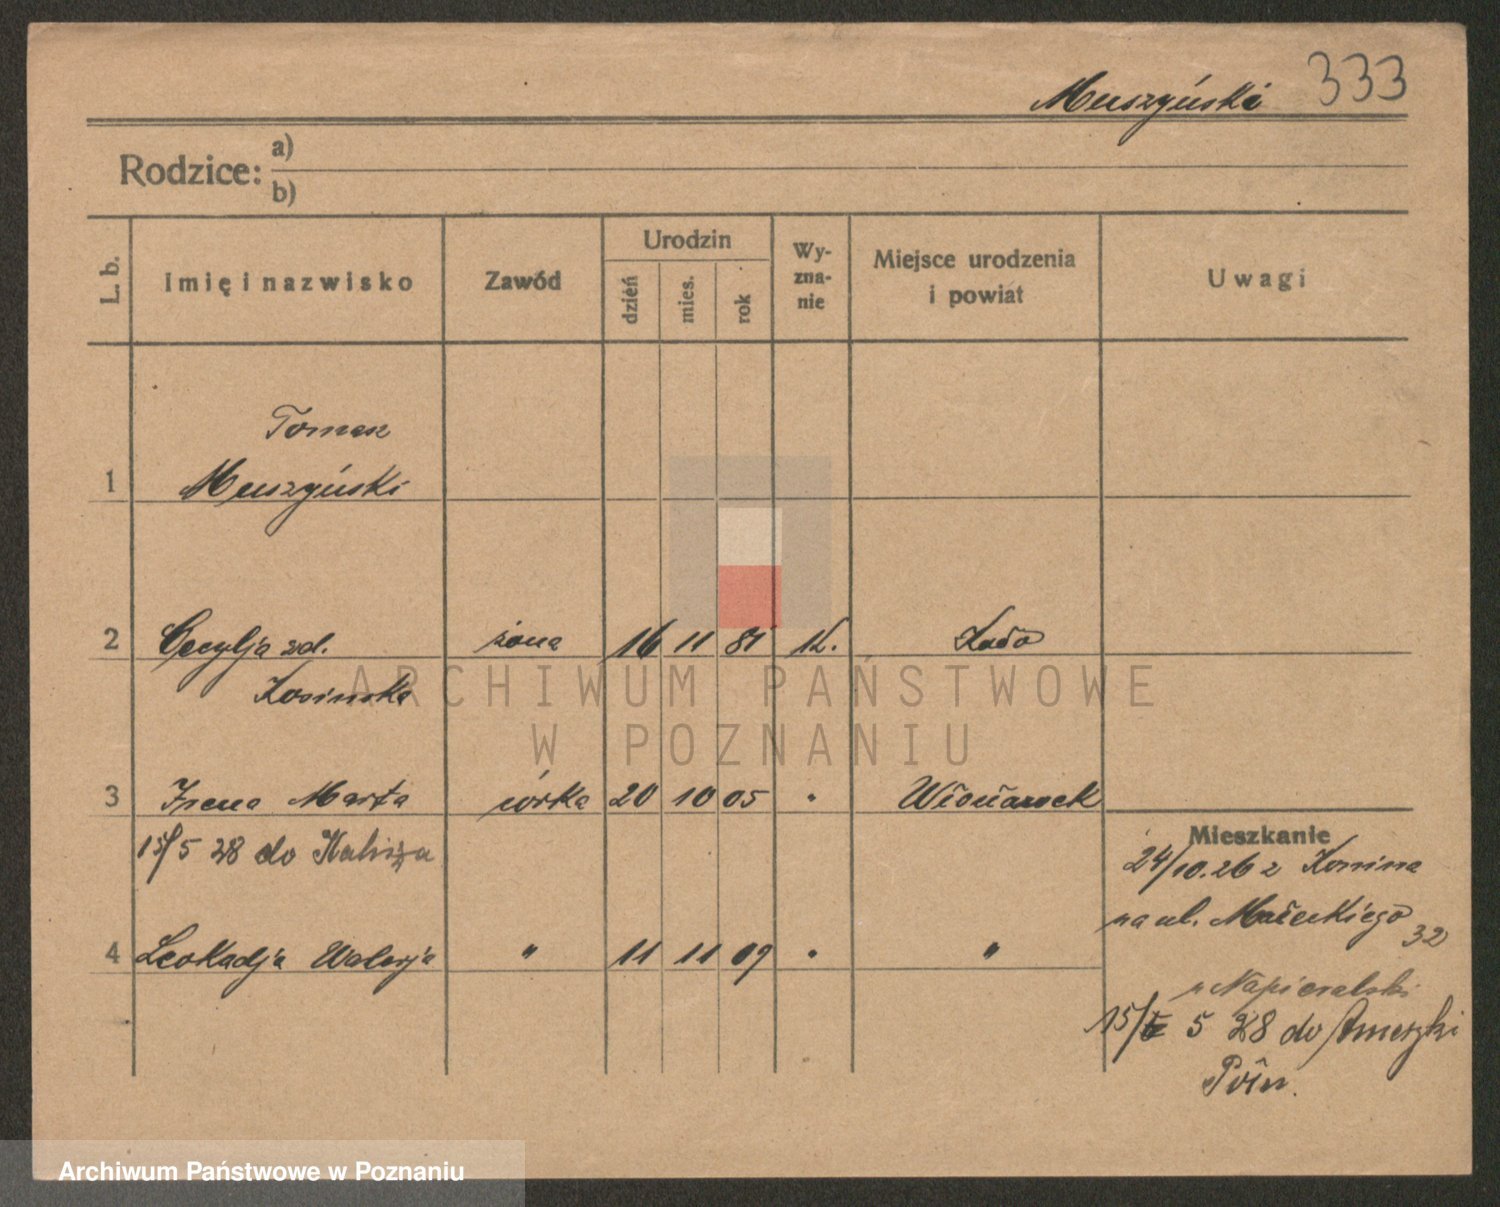 Muszyński 333
Rodzice: a)
b)
L. b. Imię i nazwisko Zawód Urodzin dzień mies. rok Wy-zna-nie Miejsce urodzenia i powiat Uwagi
Tomasz
1 Muszyński
2 Cecylja zd. żona 16 11 81 rk. Koło
Kosinska
3 Irena Marta córka 20 10 05 " 
15/5 28 do Kalisza
4 Leokadja Walerja " 11 11 09 " "
Mieszkanie
24/10.26 z Konina
na ul. Małeckiego 32
p Napieralski
15/5 5 28 do Ameryki
Połn.
ARCHIWUM PAŃSTWOWE
W POZNANIU
Archiwum Państwowe w Poznaniu